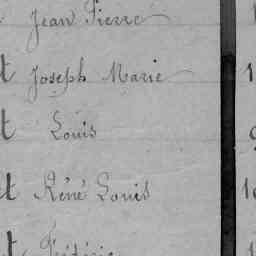 Jean Pierre
t Joseph Marie 1
t Louis 9
t Réné Louis 1
t Frédéric 1